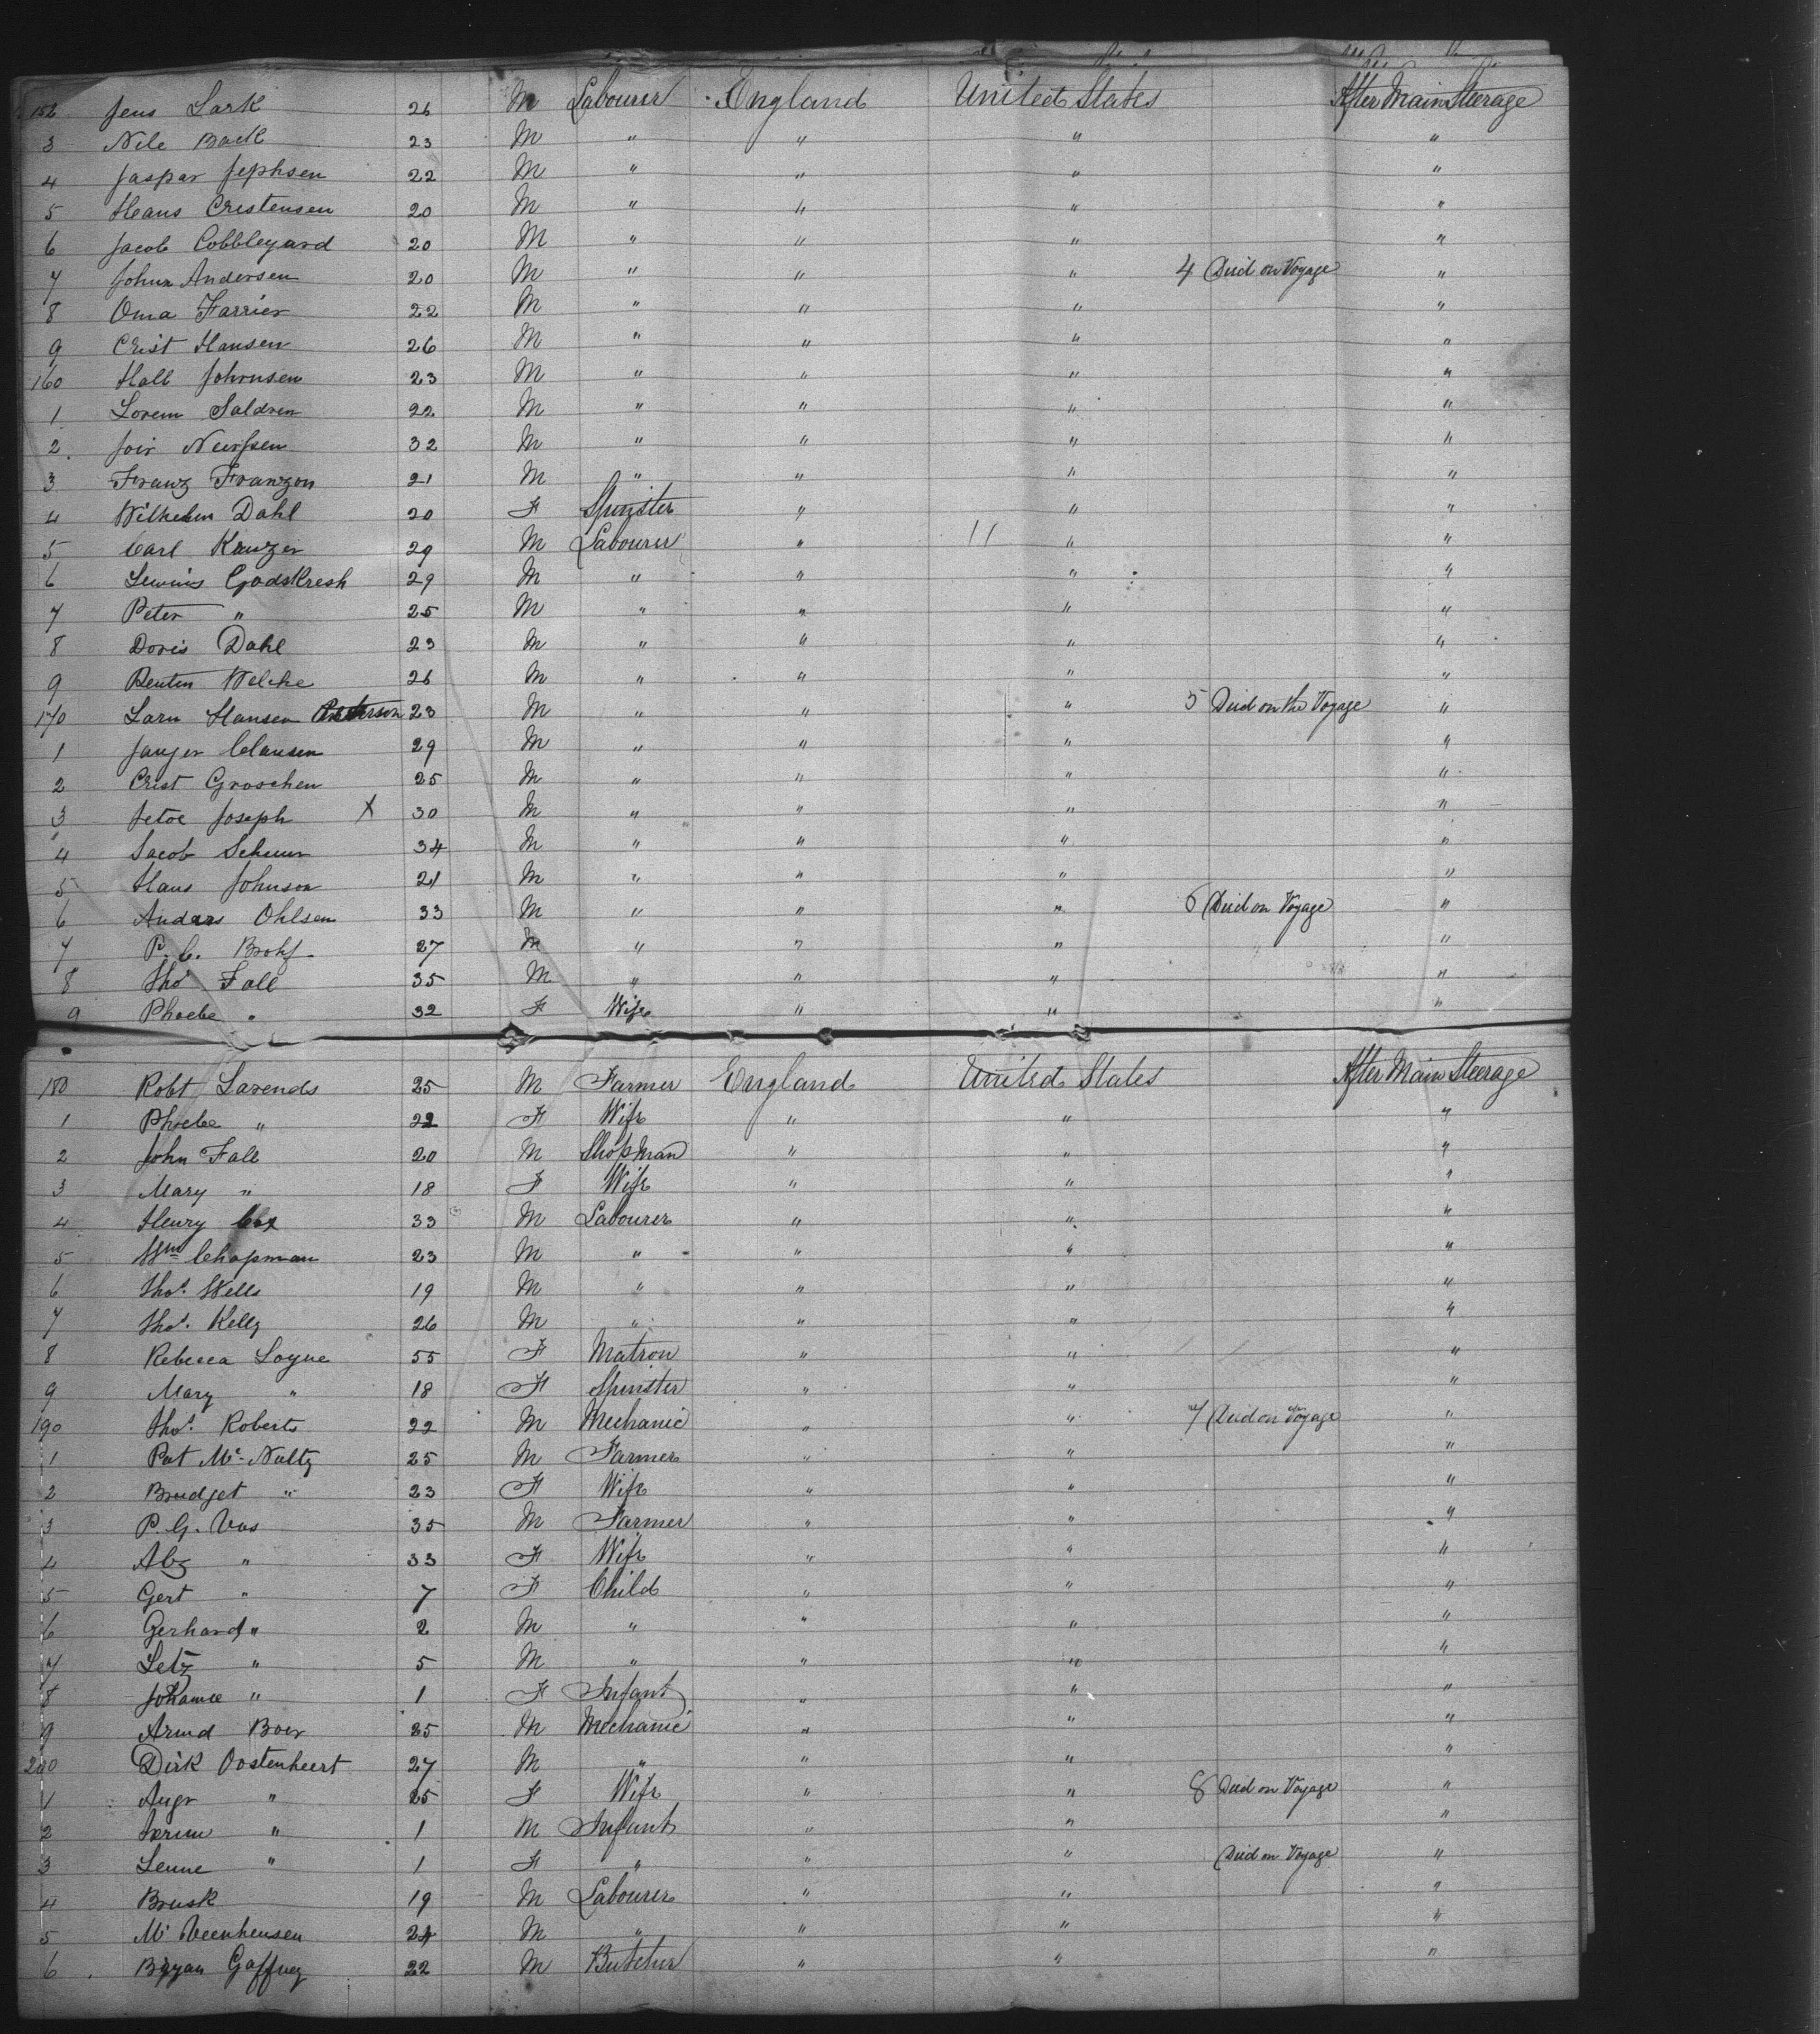 152 Jens Lark 26 M Labourer England United States After Main Steerage
3 Nile Back 23 M " " " "
4 Jaspar Jephsen 22 M " " " "
5 Hans Cristensen 20 M " " " "
6 Jacob Cobbleyard 20 M " " " "
7 Johun Andersen 20 M " " " 4 Died on Voyage "
8 Oma Farrier 22 M " " " "
9 Crist Hansen 26 M " " " "
160 Hall Johnsen 23 M " " " "
1 Lorem Saldren 22 M " " " "
2 32 M " " " "
3 Franz Franzon 21 M " " " "
4 Wilhelm Dahl 20 F Spinster " " "
5 Carl Kruzer 29 M Labourer " 11 " "
6 Godskresh 29 M " " " "
7 Peter " 25 M " " " "
8 Doris Dahl 23 M " " " "
9 Welche 26 M " " " "
170 Larn Hansen 23 M " " " 5 Died on the Voyage "
1 Clausen 29 M " " " "
2 Crist Groschen 25 M " " " "
3 Joseph X 30 M " " " "
4 Jacob 34 M " " " "
5 Hans Johnson 21 M " " " "
6 Anders Ohlsen 33 M " " " 6 Died on Voyage "
7 P. C. 27 M " " " "
8 Thos Fall 35 M " " " "
9 Phoebe " 32 F Wife " " "
180 Robt Lavends 25 M Farmer England United States After Main Steerage
1 Phoebe " 22 F Wife " " "
2 John Fall 20 M Shopman " " "
3 Mary " 18 F Wife " " "
4 Henry Cox 33 M Labourer " " "
5 Wm Chapman 23 M " " " "
6 Thos. Wells 19 M " " " "
7 Thos. Kelly 26 M " " " "
8 Rebecca Loyne 55 F Matron " " "
9 Mary " 18 F Spinster " " "
190 Thos. Roberts 22 M Mechanic " " 7 Died on Voyage "
1 Pat Mc Nulty 25 M Farmer " " "
2 Brudget " 23 F Wife " " "
3 P. G. Vos 35 M Farmer " " "
4 " 33 F Wife " " "
5 Gert " 7 F Child " " "
6 Gerhard " 2 M " " " "
7 " 5 M " " " "
8 " 1 F Infant " " "
9 Arend Boer 35 M Mechanic " " "
200 Dirk Oostenheert 27 M " " " "
1 " 25 F Wife " " 8 Died on Voyage "
2 " 1 M Infant " " "
3 Lenne " 1 F " " " Died on Voyage "
4 Brusk 19 M Labourer " " "
5 24 M " " " "
6 Bryan Gaffney 22 M Butcher " " "